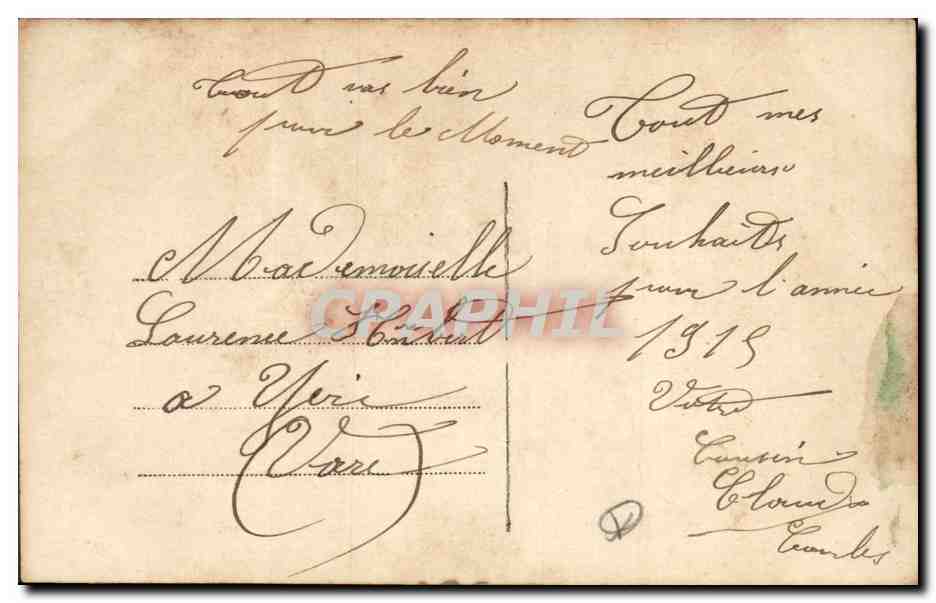 Tout vas bien
pour le Moment
Mademoiselle
Laurence Hubert
a
(Vars)
Tout mes
meillieurs
Souhaits
pour l'année
1915
Votre
Cousin
CPARPHIL